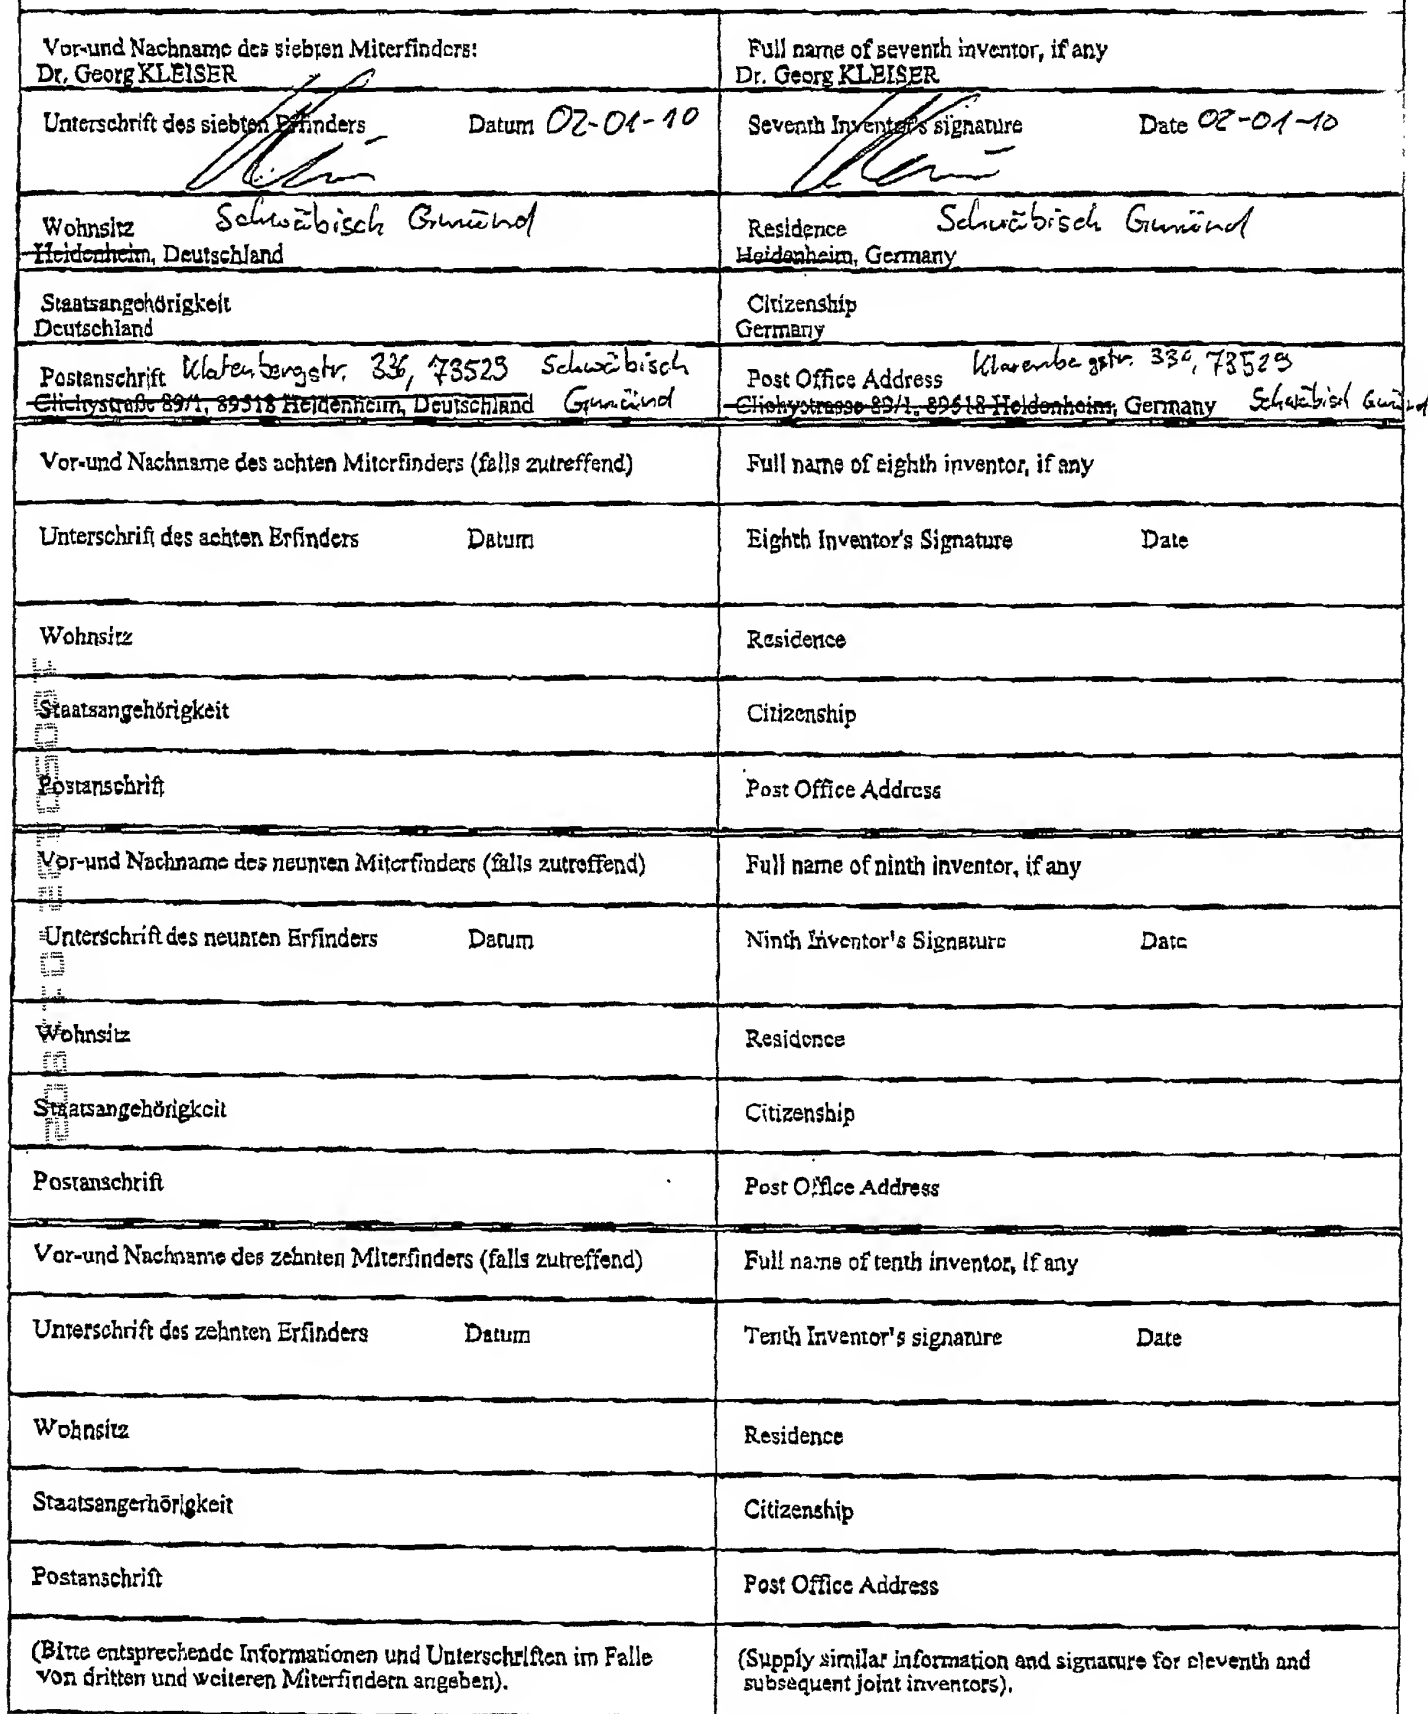 Vor-und Nachname des siebten Miterfinders:
Dr. Georg KLEISER
Full name of seventh inventor, if any
Dr. Georg KLEISER
Unterschrift des siebten Erfinders Datum 02-01-10
Seventh Inventor's signature Date 02-01-10
Wohnsitz Schwäbisch Gmünd
Heidenheim, Deutschland
Residence Schwäbisch Gmünd
Heidenheim, Germany
Staatsangehörigkeit
Deutschland
Citizenship
Germany
Postanschrift 336, 73529 Schwäbisch
Clichystraße 89/1, 89518 Heidenheim, Deutschland Gmünd
Post Office Address 336, 73529
Clichystrasse 89/1, 89518 Heidenheim, Germany Schwäbisch Gmünd
Vor-und Nachname des achten Miterfinders (falls zutreffend)
Full name of eighth inventor, if any
Unterschrift des achten Erfinders Datum
Eighth Inventor's Signature Date
Wohnsitz
Residence
Staatsangehörigkeit
Citizenship
Postanschrift
Post Office Address
Vor-und Nachname des neunten Miterfinders (falls zutreffend)
Full name of ninth inventor, if any
Unterschrift des neunten Erfinders Datum
Ninth Inventor's Signature Date
Wohnsitz
Residence
Staatsangehörigkeit
Citizenship
Postanschrift
Post Office Address
Vor-und Nachname des zehnten Miterfinders (falls zutreffend)
Full name of tenth inventor, if any
Unterschrift des zehnten Erfinders Datum
Tenth Inventor's signature Date
Wohnsitz
Residence
Staatsangerhörigkeit
Citizenship
Postanschrift
Post Office Address
(Bitte entsprechende Informationen und Unterschriften im Falle
von dritten und weiteren Miterfindern angeben).
(Supply similar information and signature for eleventh and
subsequent joint inventors).